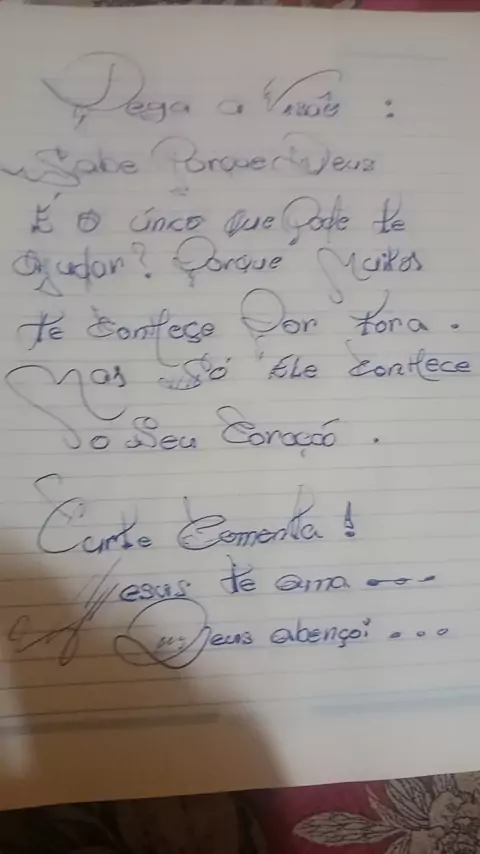 Pega a Visão :
Sabe Porque Deus
É o único que Pode te
ajudar? Porque Muitos
te Conheçe Por fora .
Mas Só Ele Conhece
o Seu Coração .
Curte Comenta !
Jesus te ama ...
Deus abençoi ...